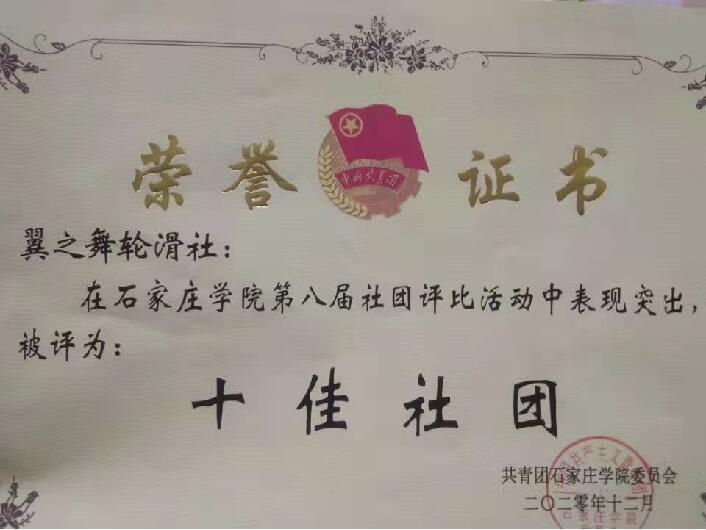 荣誉证书
中国共青团
翼之舞轮滑社：
在石家庄学院第八届社团评比活动中表现突出，
被评为：
十佳社团
共青团石家庄学院委员会
二〇二零年十二月